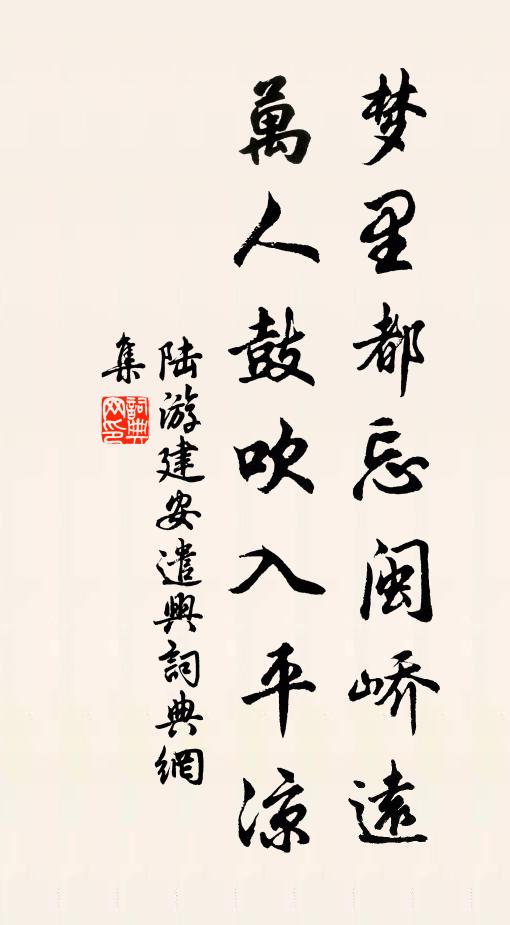 梦里都忘闽峤遠
萬人鼓吹入平涼
陆游建安遣興詞典網
集
詞典網印